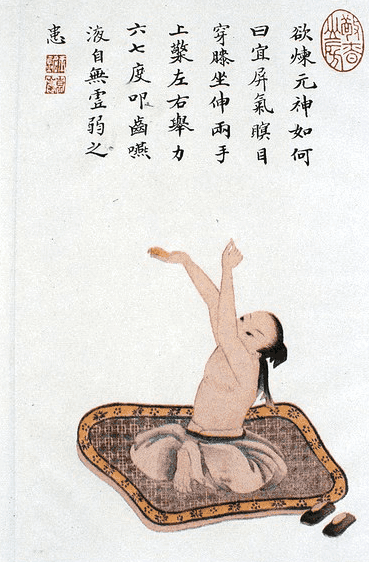 欲煉元神如何
曰宜屏氣瞑目
穿膝坐伸兩手
上擎左右舉力
六七度叩齒嚥
液自無虛弱之
患